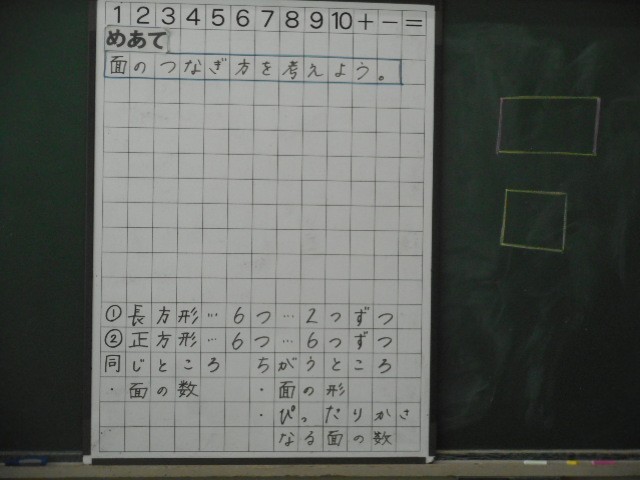 1 2 3 4 5 6 7 8 9 10 + - =
めあて
面のつなぎ方を考えよう。
①長方形…6つ…2つずつ
②正方形…6つ…6つずつ
同じところ ちがうところ
・面の数 ・面の形
・ぴったりかさ
なる面の数